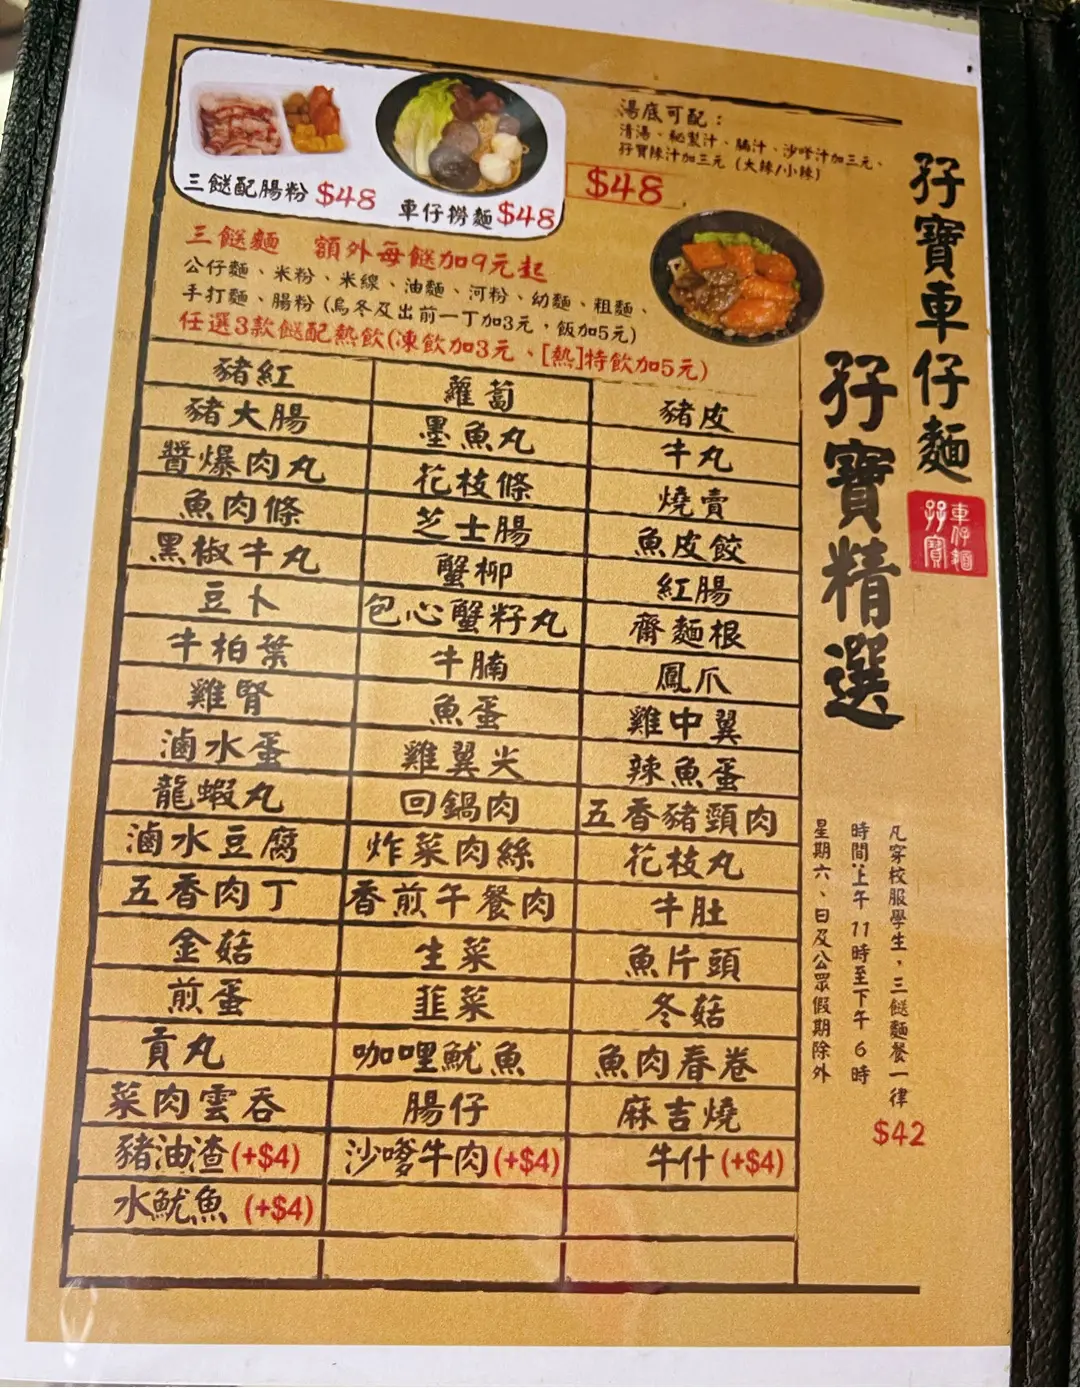 三餸配腸粉 $48
車仔撈麵 $48
湯底可配：
清湯、秘製汁、腩汁、沙嗲汁加三元、
孖寶辣汁加三元 (大辣/小辣)
$48
三餸麵 額外每餸加9元起
公仔麵、米粉、米線、油麵、河粉、幼麵、粗麵、
手打麵、腸粉 (烏冬及出前一丁加3元，飯加5元)
任選3款餸配熱飲(凍飲加3元、[熱]特飲加5元)
豬紅 蘿蔔 豬皮
豬大腸 墨魚丸 牛丸
醬爆肉丸 花枝條 燒賣
魚肉條 芝士腸 魚皮餃
黑椒牛丸 蟹柳 紅腸
豆卜 包心蟹籽丸 齋麵根
牛柏葉 牛腩 鳳爪
雞腎 魚蛋 雞中翼
滷水蛋 雞翼尖 辣魚蛋
龍蝦丸 回鍋肉 五香豬頸肉
滷水豆腐 炸菜肉絲 花枝丸
五香肉丁 香煎午餐肉 牛肚
金菇 生菜 魚片頭
煎蛋 韮菜 冬菇
貢丸 咖哩魷魚 魚肉春卷
菜肉雲吞 腸仔 麻吉燒
豬油渣(+$4) 沙嗲牛肉(+$4) 牛什(+$4)
水魷魚 (+$4)
孖寶車仔麵
孖寶精選
車仔麵
孖寶
凡穿校服學生，三餸麵餐一律
$42
時間:上午11時至下午6時
星期六、日及公眾假期除外